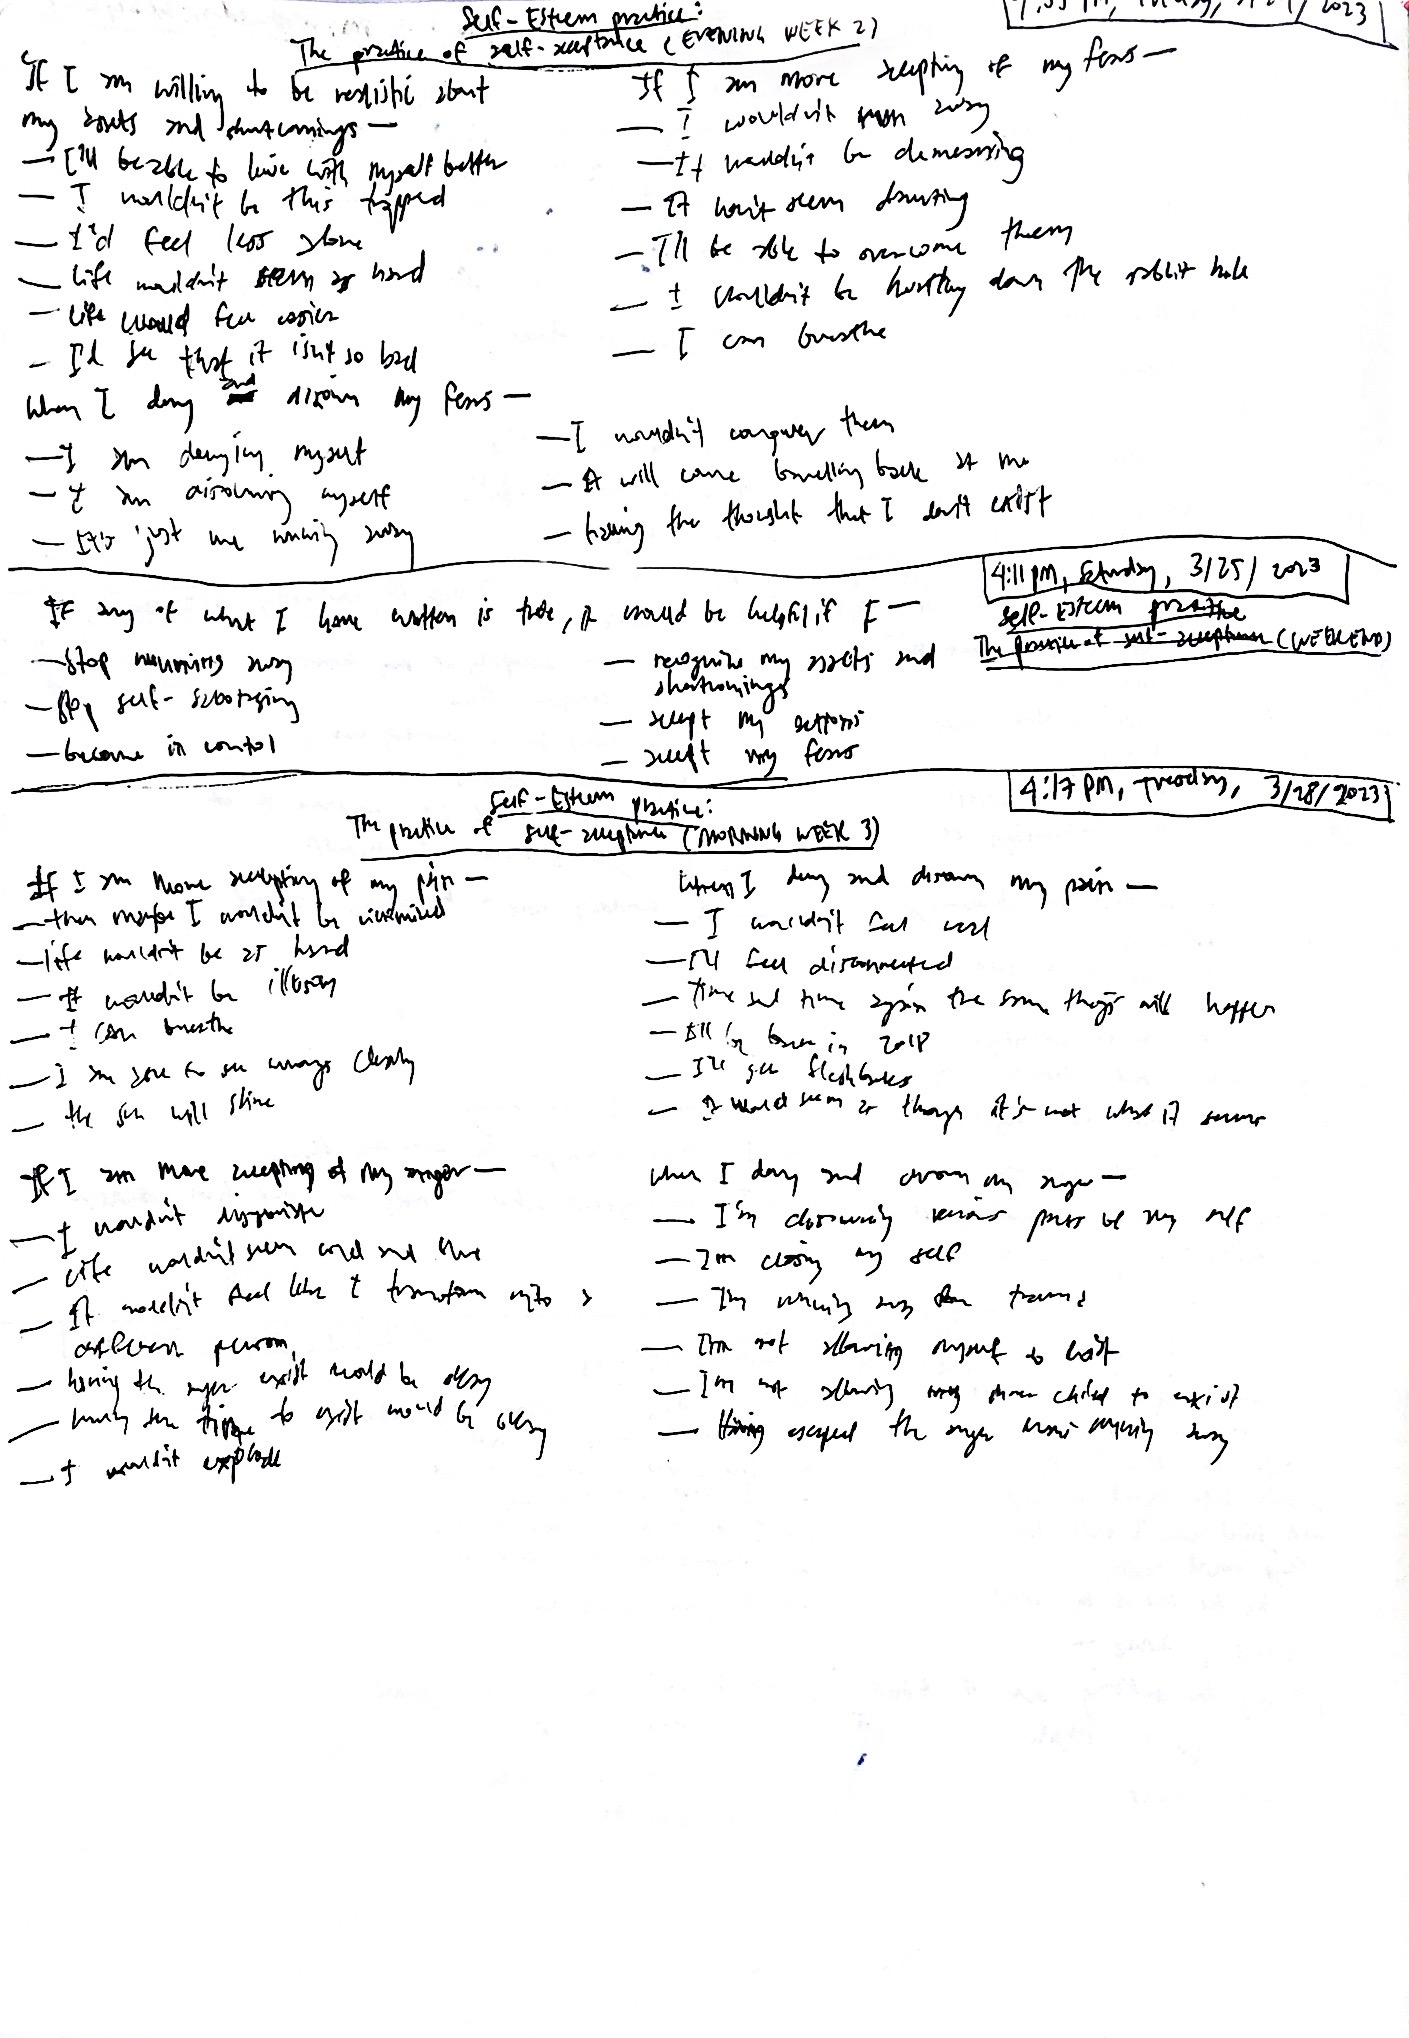 Self-Esteem practice:
The practice of self-acceptance (EVENING WEEK 2)
2023
If I am willing to be realistic about
my assets and shortcomings —
— I'll be able to live with myself better
— I wouldn't be this trapped
— I'd feel less alone
— life wouldn't seem as hard
— life would feel easier
— I'd see that it isn't so bad
If I am more accepting of my fears —
— I wouldn't run away
— It wouldn't be demeaning
— It won't seem daunting
— I'll be able to overcome them
— I wouldn't be hurtling down the rabbit hole
— I can breathe
When I deny and disown my fears —
— I am denying myself
— I am disowning myself
— It's just me running away
— I wouldn't conquer them
— It will come barrelling back at me
— having the thought that I don't exist
4:11 pm, Saturday, 3/25/2023
Self-Esteem practice
The practice of self-acceptance (WEEKEND)
If any of what I have written is true, it would be helpful if I —
— Stop running away
— Stop self-sabotaging
— become in control
— recognize my assets and
shortcomings
— accept my actions
— accept my fears
4:17 PM, Tuesday, 3/28/2023
Self-Esteem practice:
The practice of self-acceptance (MORNING WEEK 3)
If I am more accepting of my pain —
— then maybe I wouldn't be victimized
— life wouldn't be as hard
— It wouldn't be illusory
— I can breathe
— I am able to see things clearly
— the sun will shine
When I deny and disown my pain —
— I wouldn't feel real
— I'll feel disconnected
— Time and time again the same things will happen
— I'll be back in 2018
— I'll get flashbacks
— It would seem as though it's not what it seems
If I am more accepting of my anger —
— I wouldn't
— Life wouldn't seem cruel and
— It wouldn't feel like I transform into a
different person
— having the anger exist would be okay
— having the time to exist would be okay
— I wouldn't explode
When I deny and disown my anger —
— I'm disowning various parts of my self
— I'm closing my self
— I'm running away from trauma
— I'm not allowing myself to exist
— I'm not allowing my inner child to exist
— escaped the anger means running away